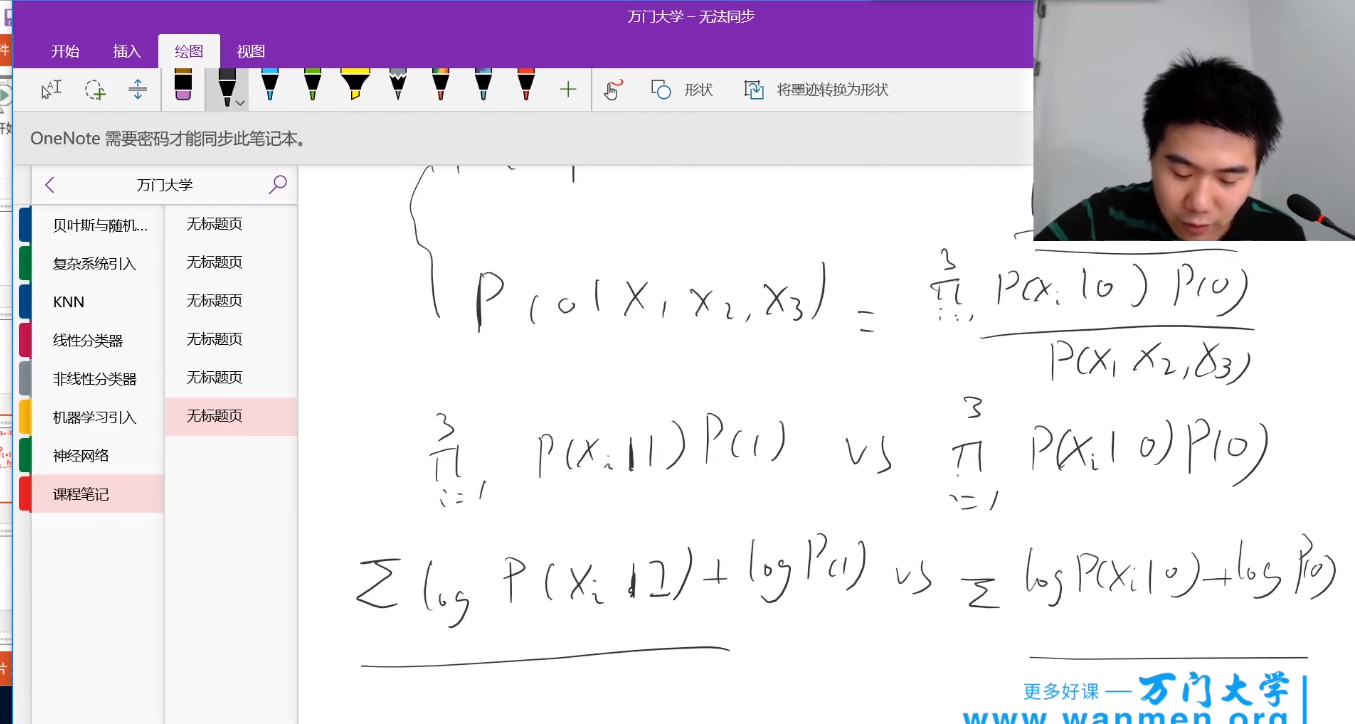 万门大学 – 无法同步
开始 插入 绘图 视图
形状 将墨迹转换为形状
OneNote 需要密码才能同步此笔记本。
万门大学
贝叶斯与随机...
复杂系统引入
KNN
线性分类器
非线性分类器
机器学习引入
神经网络
课程笔记
无标题页
无标题页
无标题页
无标题页
无标题页
无标题页
P(0|X1, X2, X3) = 3 π i=1 P(Xi|0) P(0)
P(X1 X2, X3)
3 π i=1 P(Xi|1) P(1) vs 3 π i=1 P(Xi|0) P(0)
Σ log P(Xi|1) + log P(1) vs Σ log P(Xi|0) + log P(0)
更多好课 — 万门大学
www.wanmen.org